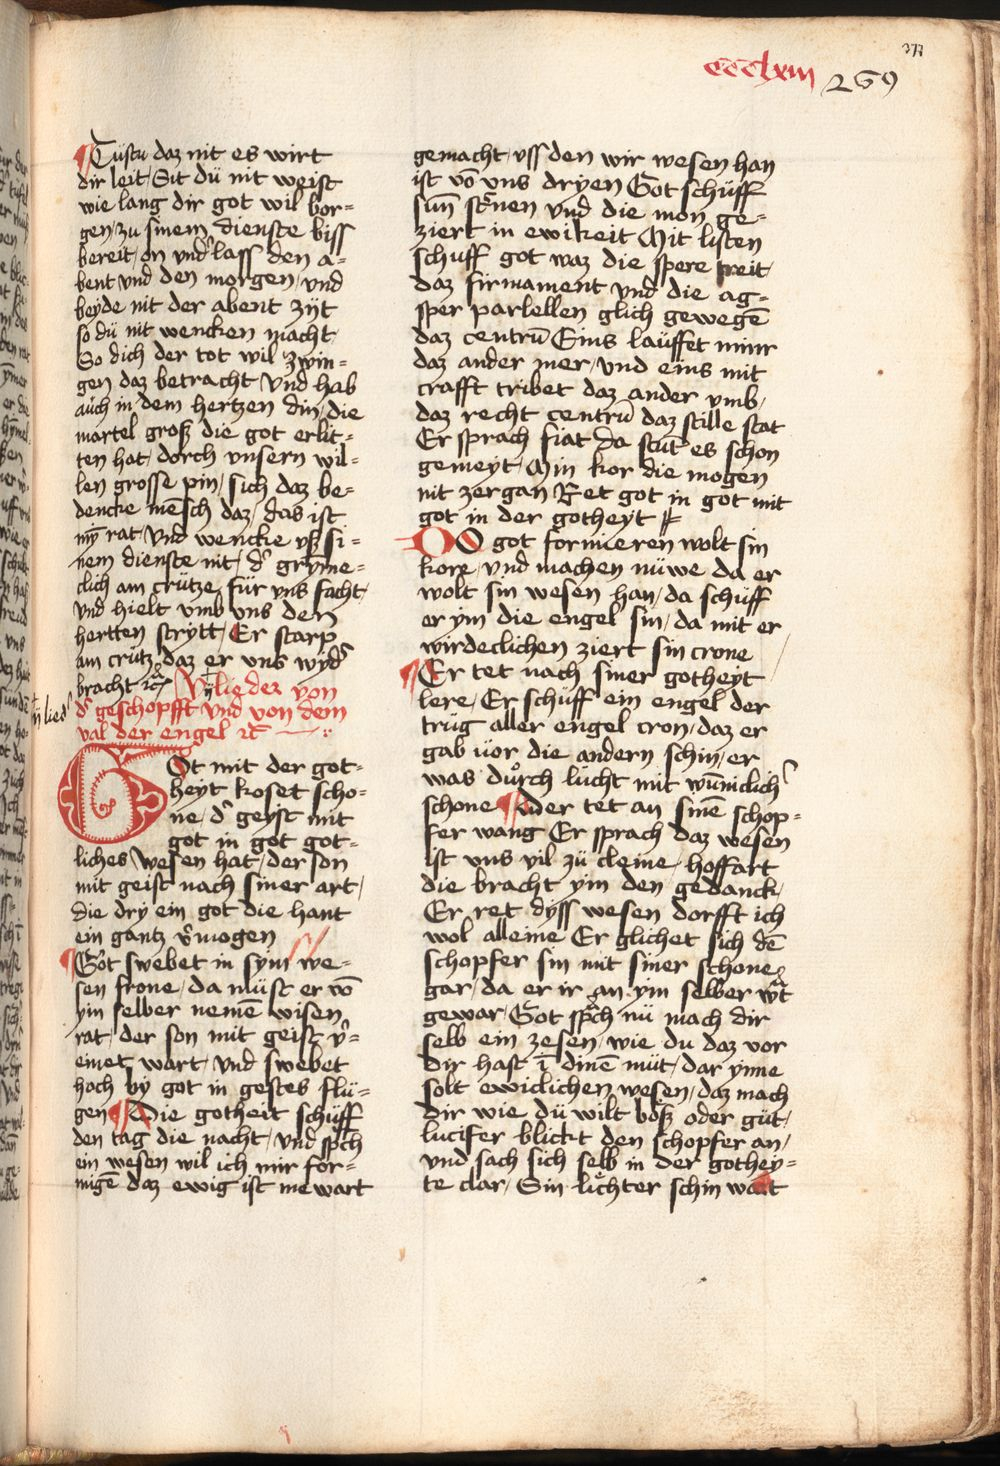 377
cccclxiii 269
Tüstu daz nit es wirt
dir leit / Sit dü nit weist
wie lang dir got wil bor-
gen / zu sinem dienste biss
bereit / on vnd'lass den a-
bent vnd den morgen / vnd
beyde nit der abent zÿt
so dü nit wencken macht
So dich der tot wil zwin-
gen daz betracht Vnd hab
aůch in dem hertzen din / die
martel groß die got erlit-
ten hat / dorch vnsern wil-
len grosse pin / sich daz be-
dencke mēsch daz / das ist
mȳ rat / Vnd wencke vß si-
nem dienste nit / d' grȳme-
clich am crütze für vns facht /
Vnd hielt vmb vns den
hertten strytt / Er starp
am crütz daz er vns wyd'
bracht ꝛc
V lieder von
d' geschopfft vnd von dem
val der engel ꝛc
ŋ lied'
GOt mit der got-
heyt koset scho-
ne / d' geyst mit
got in got got-
liches wesen hat / der son
mit geist nach siner art /
die dry ein got die hant
ein gantz v'mogen
Got swebet in sym we-
sen frone / da müst er vō
ym selber nemē wisen
rat / der son mit geist v'-
einet wart / vnd swebet
hoch by got in gestes flü-
gen Die gotheit schüff
den tag die nacht / vnd sp͛ch
ein wesen wil ich mir for-
migē daz ewig ist me wart
gemacht / vss den wir wesen han
ist vō vns dryen Got schüff
sun̄ st͛nen vnd die mon ge-
ziert in ewikeit Mit listen
schuff got waz die spere treit /
daz firmament vnd die ag-
sper parlellen glich gewegē
daz centrū Eins laüffet minr
daz ander mer / vnd eins mit
crafft tribet daz ander vmb /
daz recht centrū daz stille stat
Er sprach fiat da stūt es schon
gemeyt / Min kor die mogen
nit zergan Ret got in got mit
got in der gotheyt
DO got formieren wolt sin
kore / vnd machen nüwe da er
wolt sin wesen han / da schüff
er ym die engel sin / da mit er
wirdeclichen ziert sin crone
Er tet nach siner gotheyt
lere / Er schüff ein engel der
trüg aller engel cron / daz er
gab üor die andern schin / er
was důrch lücht mit wūniclich'
schone Der tet an sinē schop-
fer wang Er sprach daz wesen
ist vns vil zü cleine / hoffart
die bracht ym den gedanck /
Er ret dyss wesen dorfft ich
wol alleine Er glichet sich dē
schopfer sin mit siner schone
gar / da er ir an ym selber w͛t
gewar / Got sp͛ch nü mach dir
selb ein zesen / wie du daz vor
dir hast ī dinē müt / dar ynne
solt ewiclichen wesen / daz mach
dir wie dü wilt böß oder güt /
lucifer blickt den schopfer an /
vnd sach sich selb in der gothey-
te clar / Sin liechter schin wart